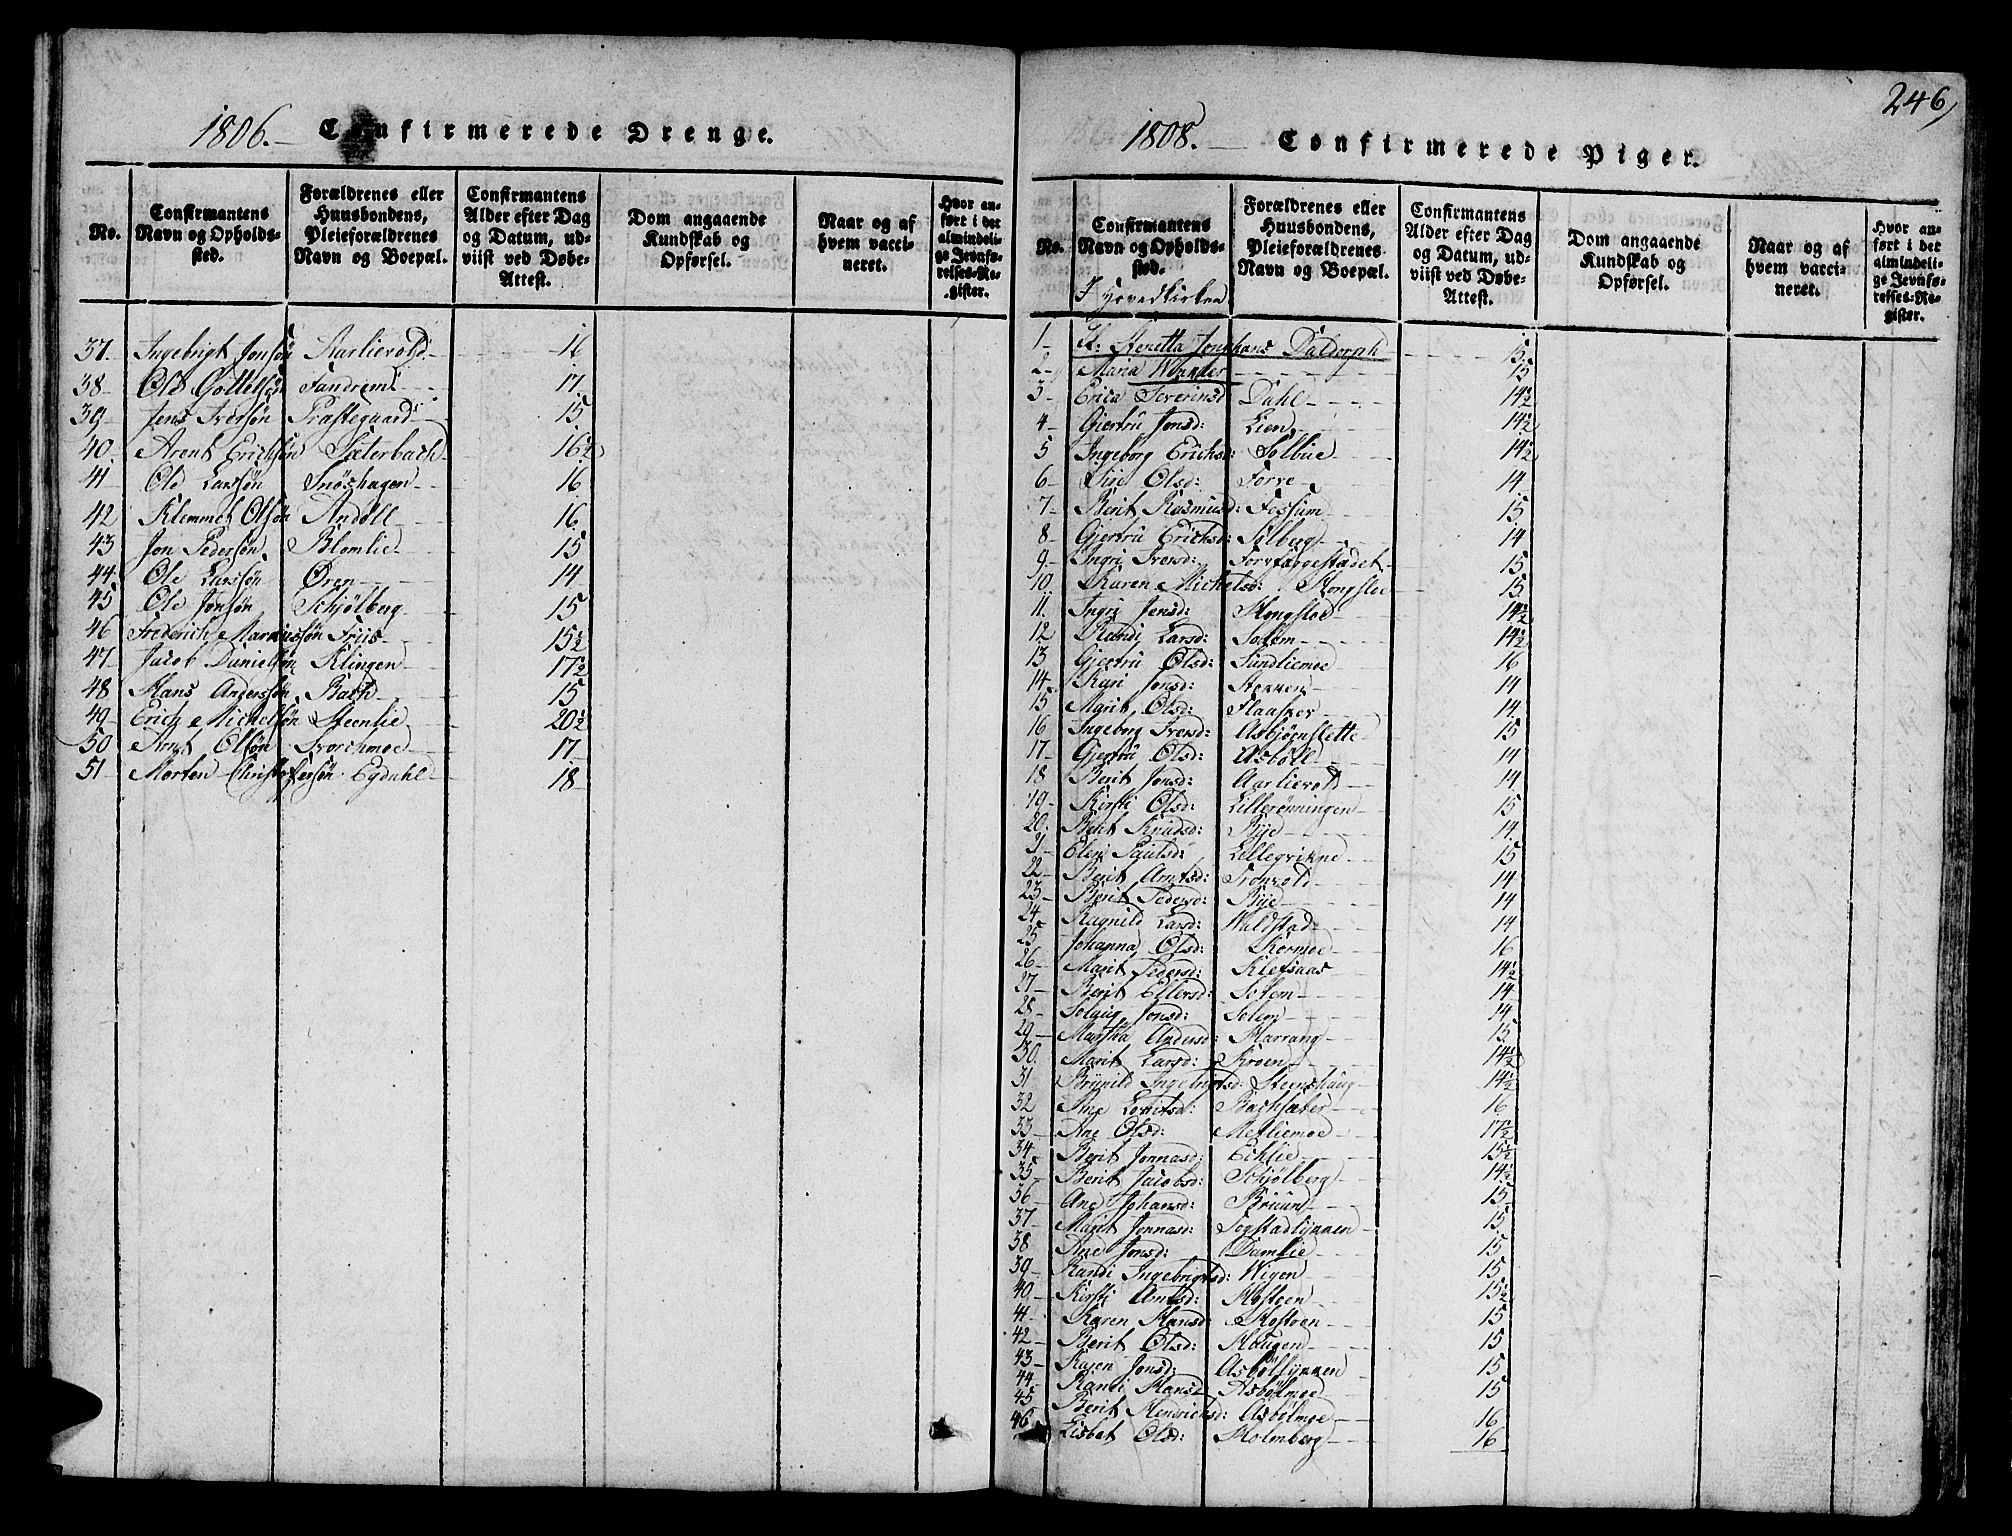 1806. Confirmerede Drenge.
No. | Confirmantens Navn og Opholdssted. | Forældrenes eller Huusbondens, Pleieforældrenes Navn og Boepæl. | Confirmantens Alder efter Dag og Datum, udviist ved Døbe-Attest. | Dom angaaende Kundskab og Opførsel. | Naar og af hvem vaccineret. | Hvor anført i det almindelige Jevnførelses-Register.
37 Ingebrigt Jonsøn Aarlievold 16
38 Ole Gottelfsøn Fandrem 17
39 Jens Iversøn Præstegaard 15
40 Arent Erichsøn Sæterbach 16½
41 Ole Larssøn Snøshagen 16
42 Klemmet Olsøn Andøll 16
43 Jon Pedersøn Blomlie 15
44 Ole Larssøn Øren 14
45 Ole Jonsøn Schjølberg 15
46 Frederich Marcussøn Friis 15½
47 Jacob Danielsøn Klingen 17½
48 Hans Anderssøn Bach 15
49 Erich Michelsøn Steenlie 20½
50 Arnt Olsøn Svorchmoe 17
51 Morten Christofersøn Eydahl 18
246
1808. Confirmerede Piger.
No. | Confirmantens Navn og Opholdssted. | Forældrenes eller Huusbondens, Pleieforældrenes Navn og Boepæl. | Confirmantens Alder efter Dag og Datum, udviist ved Døbe-Attest. | Dom angaaende Kundskab og Opførsel. | Naar og af hvem vaccineret. | Hvor anført i det almindelige Jevnførelses-Register.
I Hovedkirken
1 Daldorph 15
2 Maria 15
3 Erica Severinsd Dahl 14½
4 Giertrü Jonsd: Lien 14½
5 Ingeborg Erichsd: Solbue 14½
6 Siri Olsd: Forre 14
7 Berit Rasmusd: Fossum 15
8 Gjertrü Erichsd: Solberg 14
9 Ingri Iversd: 15
10 Karen Michelsd: Hongsloe 15
11 Ingri Jensd: Hongsloe 14½
12 Randi Larsd: Solem 14½
13 Gjertrü Olsd: Sundliemoe 16
14 Kari Jonsd: Stokken 14
15 Marit Olsd: Flaasker 14
16 Ingeborg Iversd: Asbjørnslette 15
17 Gjertrü Olsd: Asbøll 14
18 Berit Jonsd: Aarlievold 14
19 Kirsti Olsd: Lillerønningen 15
20 Berit Knudsd: Rye 14
21 Elen Paulsd: Lillegrikne 15
22 Berit Arntsd: Tronvold 14
23 Berit Pedersd: Rye 14
24 Ragnild Larsd: Waldstad 14
25 Johanna Olsd: Skormoe 16
26 Marit Pedersd: Klefsaas 14½
27 Berit Ellefsd: Solem 14
28 Solaug Jonsd: Solem 14
29 Martha Andersd: Harrang 15
30 Marit Larsd: Kroen 14½
31 Brynild Ingebrigtsd: Steenshaug 14½
32 Ane Bachsæter 16
33 Ane Olsd: Mefliemoe 17½
34 Berit Jonnasd: Echlie 15½
35 Berit Jacobsd: Schjølberg 14½
36 Ane Johansd: Bruun 15
37 Marit Jonnasd: Togstadlykken 15
38 Ane Jonsd: Damlie 15
39 Randi Ingebrigtsd: Wigen 15
40 Kirsti Arntsd: Mostoen 15½
41 Karen Hansd: Mostoen 15
42 Berit Olsd: Haugen 15
43 Karen Jonsd: Asbøllykken 15
44 Randi Hansd Asbølmoe 15
45 Berit Hendrichsd: Asbølmoe 16
46 Lisbet Olsd: Holmberg 16